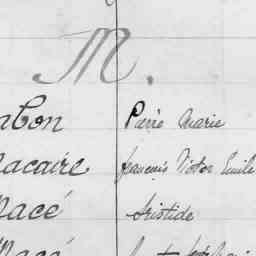 M.
abon Pierre Marie
acaire françois Victor Emile
Macé Aristide
Macé